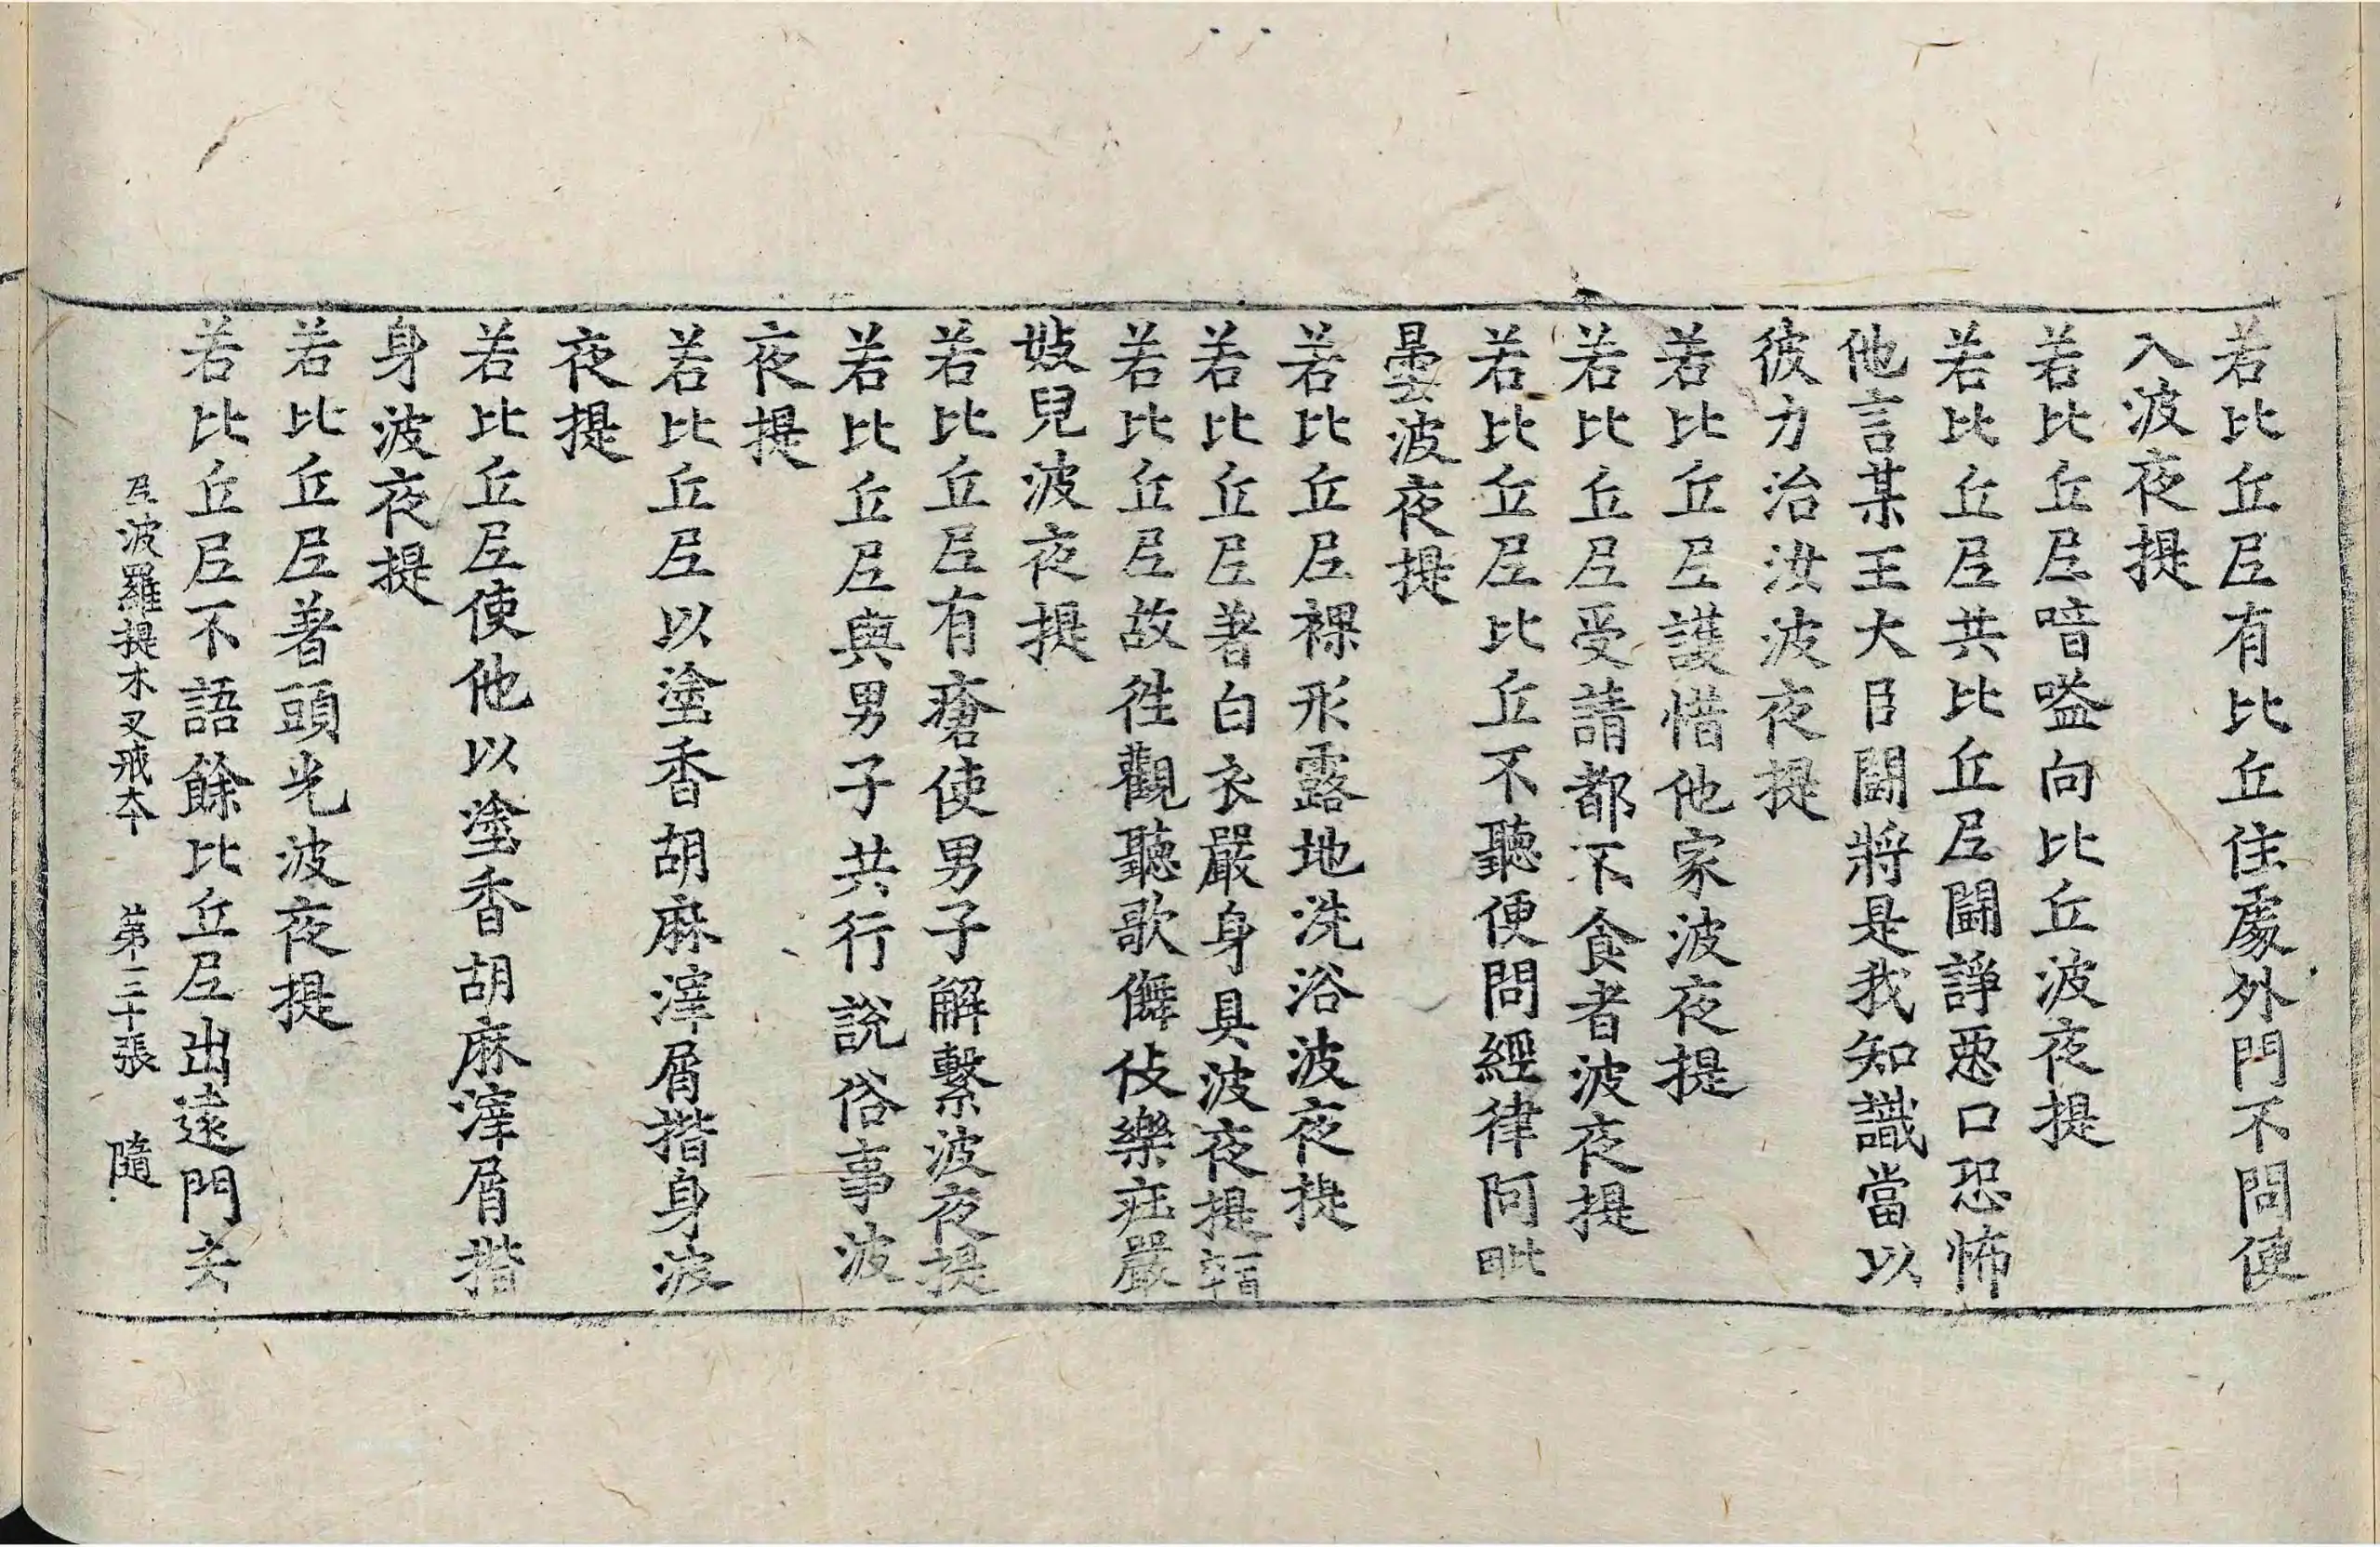 若比丘尼有比丘住處外門不問便
入波夜提
若比丘尼喑嗌向比丘波夜提
若比丘尼共比丘尼鬪諍惡口恐怖
他言某王大臣鬪將是我知識當以
彼力治汝波夜提
若比丘尼護惜他家波夜提
若比丘尼受請都不食者波夜提
若比丘尼比丘不聽便問經律阿毗
曇波夜提
若比丘尼裸形露地洗浴波夜提
若比丘尼著白衣嚴身具波夜提
若比丘尼故往觀聽歌儛伎樂莊嚴
妓兒波夜提
若比丘尼有瘡使男子解繫波夜提
若比丘尼與男子共行說俗事波
夜提
若比丘尼以塗香胡麻滓屑揩身波
夜提
若比丘尼使他以塗香胡麻滓屑揩
身波夜提
若比丘尼著頭光波夜提
若比丘尼不語餘比丘尼出遠門去
尼波羅提木叉戒本 第三十張 隨